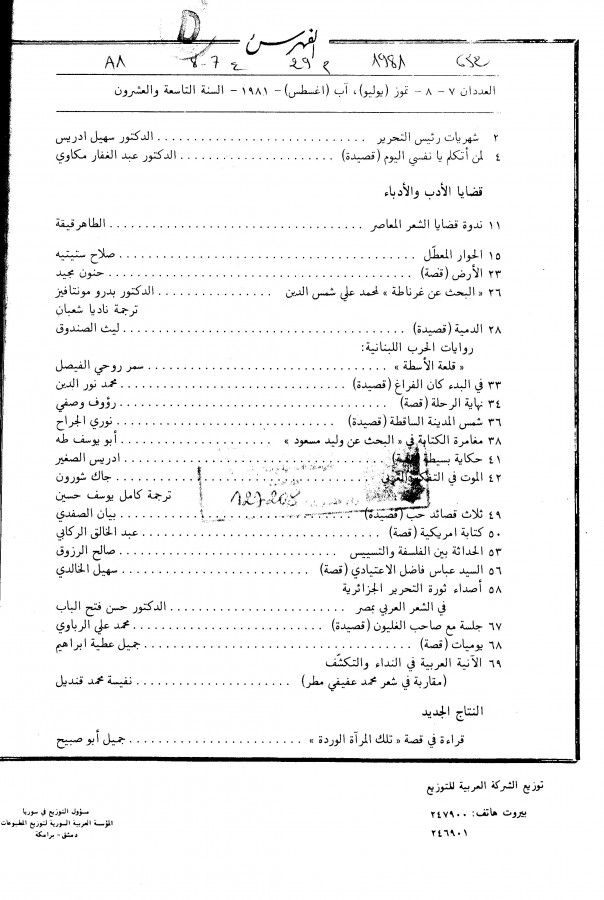 D
الفهرس
٨-٧ ع ٢٩ م ١٩٨١
العددان ٧ - ٨ - تموز (يوليو)، آب (اغسطس) - ١٩٨١ - السنة التاسعة والعشرون
٢ شهريات رئيس التحرير . . . الدكتور سهيل ادريس
٤ لمن أتكلم يا نفسي اليوم (قصيدة) . . . الدكتور عبد الغفار مكاوي
قضايا الأدب والأدباء
١١ ندوة قضايا الشعر المعاصر . . . الطاهر قيقة
١٥ الحوار المعطّل . . . صلاح ستيتيه
٢٣ الأرض (قصة) . . . حنون مجيد
٢٦ « البحث عن غرناطة » لمحمد علي شمس الدين . . . الدكتور بدرو مونتافيز
ترجمة ناديا شعبان
٢٨ الدمية (قصيدة) . . . ليث الصندوق
روايات الحرب اللبنانية:
« قلعة الأسطة » . . . سمر روحي الفيصل
٣٣ في البدء كان الفراغ (قصيدة) . . . محمد نور الدين
٣٤ نهاية الرحلة (قصة) . . . رؤوف وصفي
٣٦ شمس المدينة الساقطة (قصيدة) . . . نوري الجراح
٣٨ مغامرة الكتابة في « البحث عن وليد مسعود » . . . أبو يوسف طه
٤١ حكاية بسيطة . . . ادريس الصغير
٤٢ الموت في . . . جاك شورون
ترجمة كامل يوسف حسين
127205
٤٩ ثلاث قصائد حب (قصيدة) . . . بيان الصفدي
٥٠ كتابة امريكية (قصة) . . . عبد الخالق الركابي
٥٣ الحداثة بين الفلسفة والتسييس . . . صالح الرزوق
٥٦ السيد عباس فاضل الاعتيادي (قصة) . . . سهيل الخالدي
٥٨ أصداء ثورة التحرير الجزائرية
في الشعر العربي بمصر . . . الدكتور حسن فتح الباب
٦٧ جلسة مع صاحب الغليون (قصيدة) . . . محمد علي الرباوي
٦٨ يوميات (قصة) . . . جميل عطية ابراهيم
٦٩ الآنية العربية في النداء والتكشّف
(مقاربة في شعر محمد عفيفي مطر) . . . نفيسة محمد قنديل
النتاج الجديد
قراءة في قصة « تلك المرآة الوردة » . . . جميل أبو صبيح
توزيع الشركة العربية للتوزيع
بيروت هاتف: ٢٤٧٩٠٠
٢٤٦٩٠١
مسؤول التوزيع في سوريا
المؤسسة العربية السورية لتوزيع المطبوعات
دمشق - برامكة